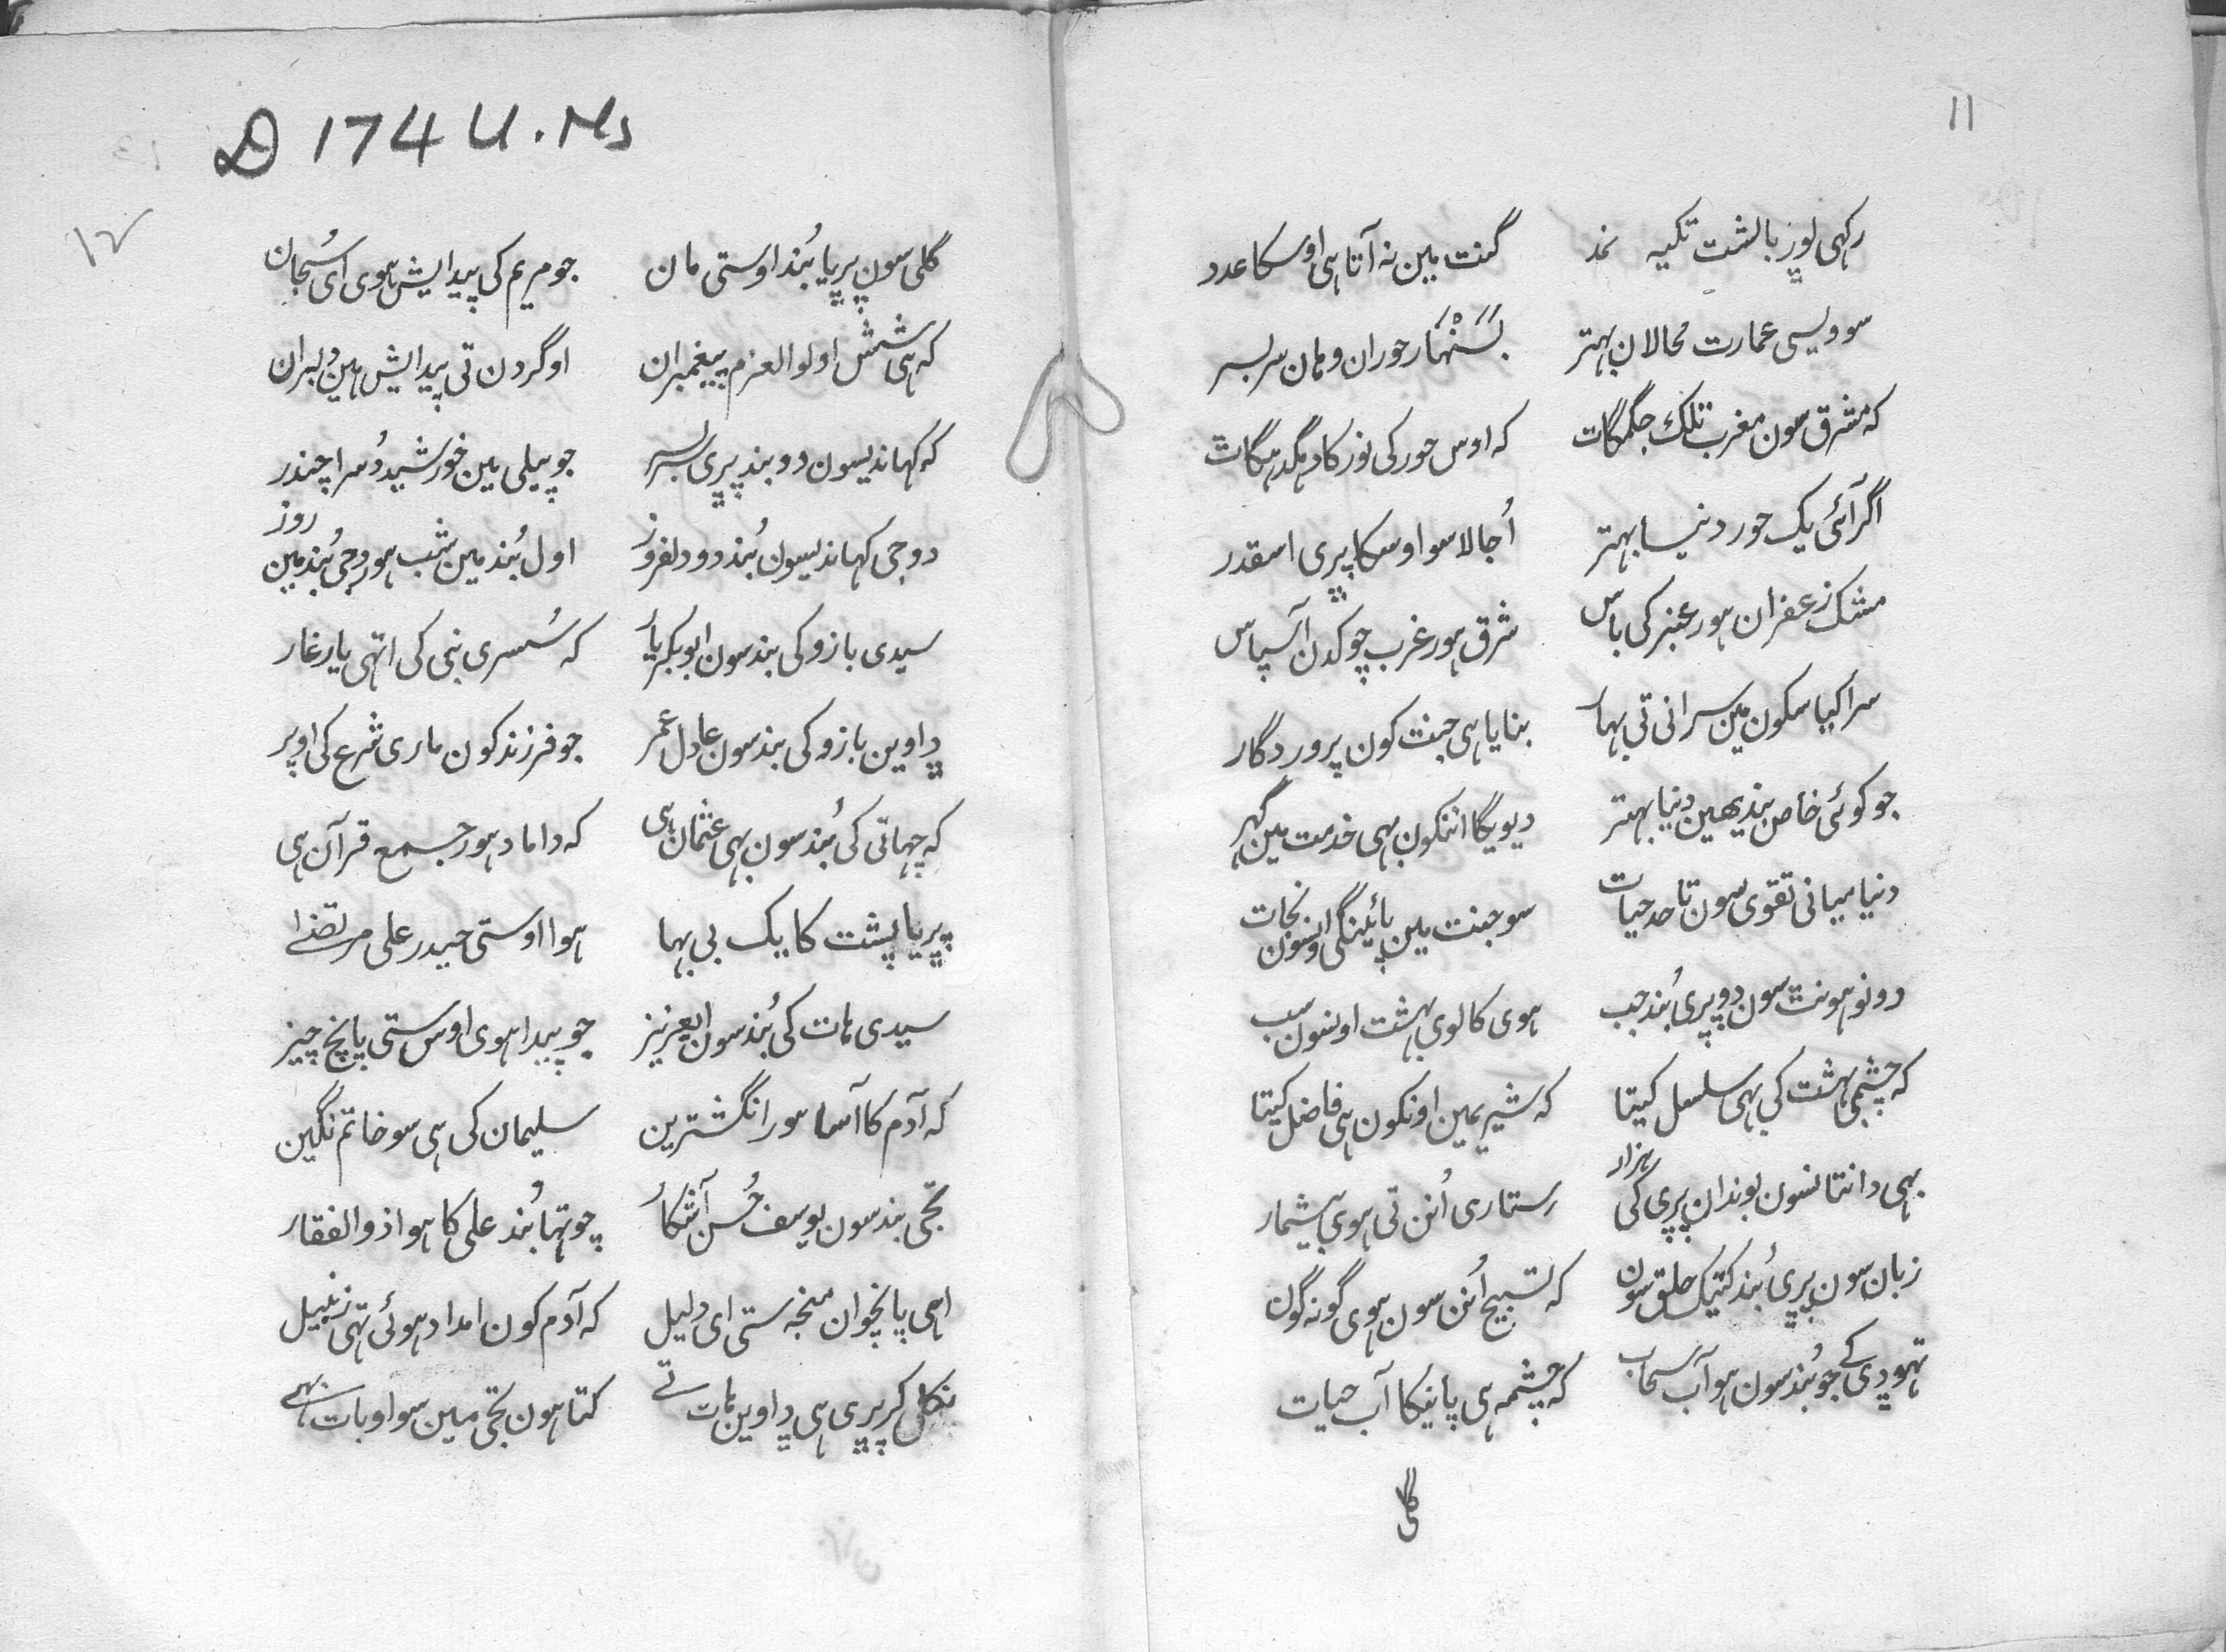 11
رکهی لوپر بالشت تکیه نمد گنت مین نه آتا هی اوسکا عدد
سو ویسی عمارت محالان بهتر بسنهار حوران وهان سربسر
که مشرق سون مغرب تلک جگمگات که اوس حور کی نور کا دهگدهگات
اگر آئی یک حور دنیا بهتر اُجالا سو اوسکا پری اسقدر
مشک زعفران هور عنبر کی باس شرق هور غرب چوکدن آسپاس
سراکیا سکون مین سرانی تی بهار بنایا هی جنت کون پروردگار
جو کوئی خاص بندیهین دنیا بهتر دیویگا اننکون بهی خدمت مین گهر
دنیا میانی تقوی سون تا حد حیات سو جنت مین پائینگی اونسون نجات
دونو هونت سون دو پری بُند جب هوی کالوی بهشت اوسون سب
که چشمی بهشت کی بهی سلسل کیتا که شیر یمین اونکون هی فاضل کیتا
بهی دانتانسون بوندان پری کی هزار رستاری اُنن تی هوی بیشمار
زبان سون پری بُند کتیک حلق سون که تسبیح اُنن سون هوی گونه گون
تهودی کے جو بُند سون هو آب سحاب که چشمه هی پانیکا آب حیات
گلی
D 174 U. Ms
۱۲
گلی سون پریا بُند اوستی مان جو مریم کی پیدایش هوی ای سُبحان
که هی شش اولوالعزم پیغمبران او گردن تی پیدایش هین دلبران
که کهاندیسون دو بند پری بسر جو پیلی مین خورشید دُسرا چندر
دوجی کهاندیسون بُند دو دلفروز اول بُند مین شب هور دوجی بُند مین روز
سیدی بازو کی بند سون ابوبکر یار که سُسری نبی کی اتهی یار غار
داوین بازو کی بند سون عادل عمر جو فرزند کون ماری شرع کی اوپر
که چهاتی کی بُند سون بهی عثمان هی که داماد هور جمع قرآن هی
پریا پشت کا یک بی بها هوا اوستی حیدر علی مرتضے
سیدی هات کی بُند سون ایعزیز جو پیدا هوی اوس ستی پانچ چیز
که آدم کا آسا هور انگشترین سلیمان کی هی سو خاتم نگین
تجی بند سون یوسف حُسن آشکار چوتها بُند علی کا هوا ذوالفقار
اهی پانچوان منجه ستی ای دلیل که آدم کون امداد هوئی تهی زنبیل
نکل کر پری هی داوین هات تے کتا هون تجی مین سو او بات بهے